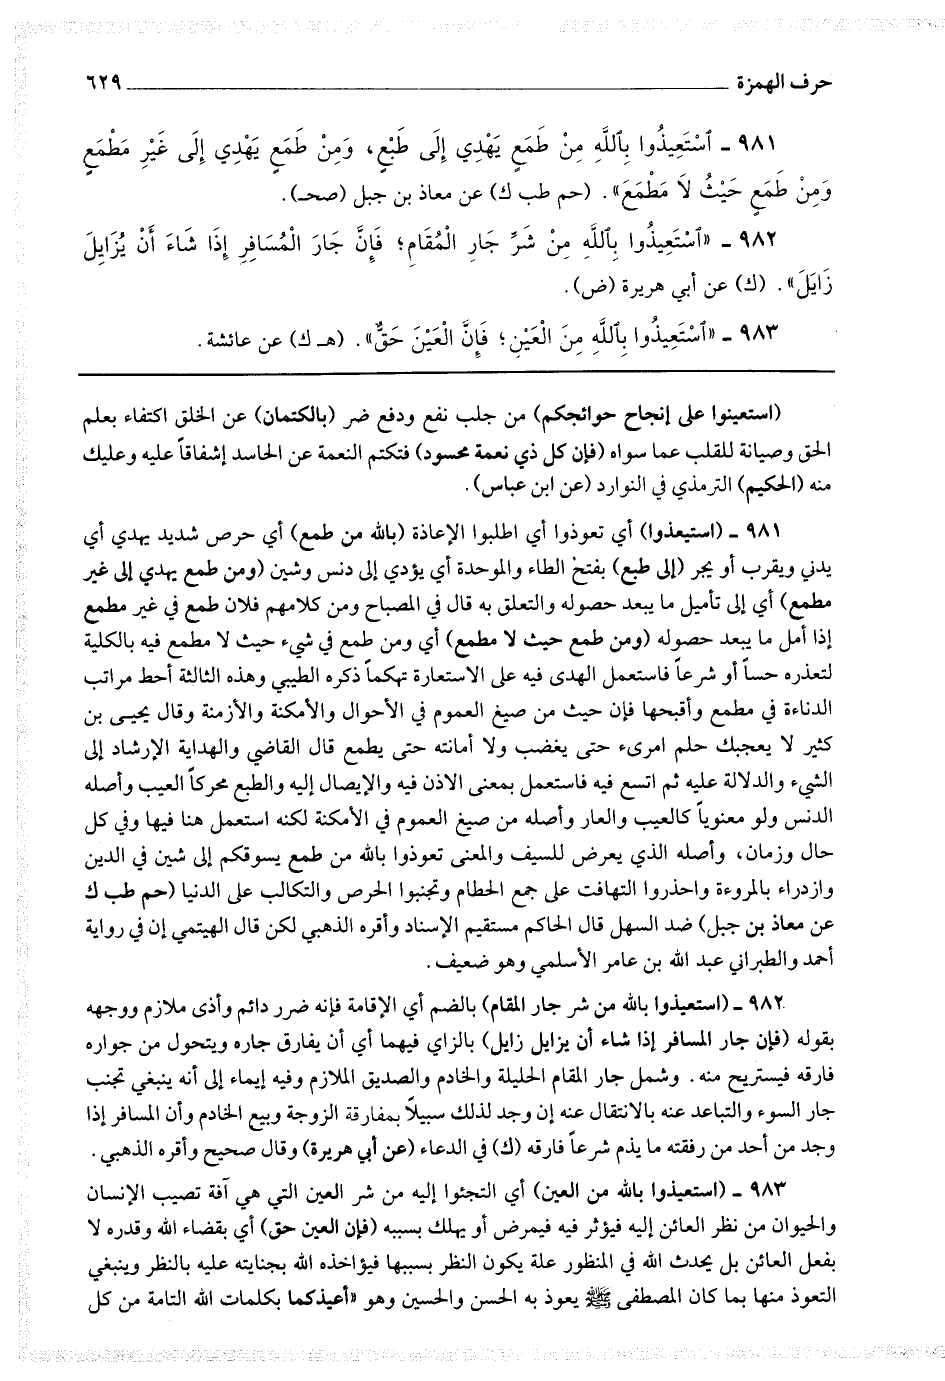 حرف الهمزة ـــــــــــــــــــــــــــــــ ٦٢٩
٩٨١ ـ ٱسْتَعِيذُوا بِٱللَّهِ مِنْ طَمَعٍ يَهْدِي إِلَى طَبْعٍ، وَمِنْ طَمَعٍ يَهْدِي إِلَى غَيْرِ مَطْمَعٍ
وَمِنْ طَمَعٍ حَيْثُ لَا مَطْمَعَ». (حم طب ك) عن معاذ بن جبل (صحـ).
٩٨٢ ـ «ٱسْتَعِيذُوا بِٱللَّهِ مِنْ شَرِّ جَارِ الْمُقَامِ؛ فَإِنَّ جَارَ الْمُسَافِرِ إِذَا شَاءَ أَنْ يُزَايِلَ
زَايَلَ». (ك) عن أبي هريرة (ض).
٩٨٣ ـ «ٱسْتَعِيذُوا بِٱللَّهِ مِنَ الْعَيْنِ؛ فَإِنَّ الْعَيْنَ حَقٌّ». (هـ ك) عن عائشة.
(استعينوا على إنجاح حوائجكم) من جلب نفع ودفع ضر (بالكتمان) عن الخلق اكتفاء بعلم
الحق وصيانة للقلب عما سواه (فإن كل ذي نعمة محسود) فتكتم النعمة عن الحاسد إشفاقاً عليه وعليك
منه (الحكيم) الترمذي في النوارد (عن ابن عباس).
٩٨١ ـ (استيعذوا) أي تعوذوا أي اطلبوا الإعاذة (بالله من طمع) أي حرص شديد يهدي أي
يدني ويقرب أو يجر (إلى طبع) بفتح الطاء والموحدة أي يؤدي إلى دنس وشين (ومن طمع يهدي إلى غير
مطمع) أي إلى تأميل ما يبعد حصوله والتعلق به قال في المصباح ومن كلامهم فلان طمع في غير مطمع
إذا أمل ما يبعد حصوله (ومن طمع حيث لا مطمع) أي ومن طمع في شيء حيث لا مطمع فيه بالكلية
لتعذره حساً أو شرعاً فاستعمل الهدى فيه على الاستعارة تهكماً ذكره الطيبي وهذه الثالثة أحط مراتب
الدناءة في مطمع وأقبحها فإن حيث من صيغ العموم في الأحوال والأمكنة والأزمنة وقال يحيـى بن
كثير لا يعجبك حلم امرىء حتى يغضب ولا أمانته حتى يطمع قال القاضي والهداية الإرشاد إلى
الشيء والدلالة عليه ثم اتسع فيه فاستعمل بمعنى الاذن فيه والإيصال إليه والطبع محركاً العيب وأصله
الدنس ولو معنوياً كالعيب والعار وأصله من صيغ العموم في الأمكنة لكنه استعمل هنا فيها وفي كل
حال وزمان، وأصله الذي يعرض للسيف والمعنى تعوذوا بالله من طمع يسوقكم إلى شين في الدين
وازدراء بالمروءة واحذروا التهافت على جمع الحطام وتجنبوا الحرص والتكالب على الدنيا (حم طب ك
عن معاذ بن جبل) ضد السهل قال الحاكم مستقيم الإسناد وأقره الذهبي لكن قال الهيتمي إن في رواية
أحمد والطبراني عبد الله بن عامر الأسلمي وهو ضعيف.
٩٨٢ ـ (استعيذوا بالله من شر جار المقام) بالضم أي الإقامة فإنه ضرر دائم وأذى ملازم ووجهه
بقوله (فإن جار المسافر إذا شاء أن يزايل زايل) بالزاي فيهما أي أن يفارق جاره ويتحول من جواره
فارقه فيستريح منه. وشمل جار المقام الحليلة والخادم والصديق الملازم وفيه إيماء إلى أنه ينبغي تجنب
جار السوء والتباعد عنه بالانتقال عنه إن وجد لذلك سبيلاً بمفارقة الزوجة وبيع الخادم وأن المسافر إذا
وجد من أحد من رفقته ما يذم شرعاً فارقه (ك) في الدعاء (عن أبي هريرة) وقال صحيح وأقره الذهبي.
٩٨٣ ـ (استعيذوا بالله من العين) أي التجئوا إليه من شر العين التي هي آفة تصيب الإنسان
والحيوان من نظر العائن إليه فيؤثر فيه فيمرض أو يهلك بسببه (فإن العين حق) أي بقضاء الله وقدره لا
بفعل العائن بل يحدث الله في المنظور علة يكون النظر بسببها فيؤاخذه الله بجنايته عليه بالنظر وينبغي
التعوذ منها بما كان المصطفى ﷺ يعوذ به الحسن والحسين وهو «أعيذكما بكلمات الله التامة من كل